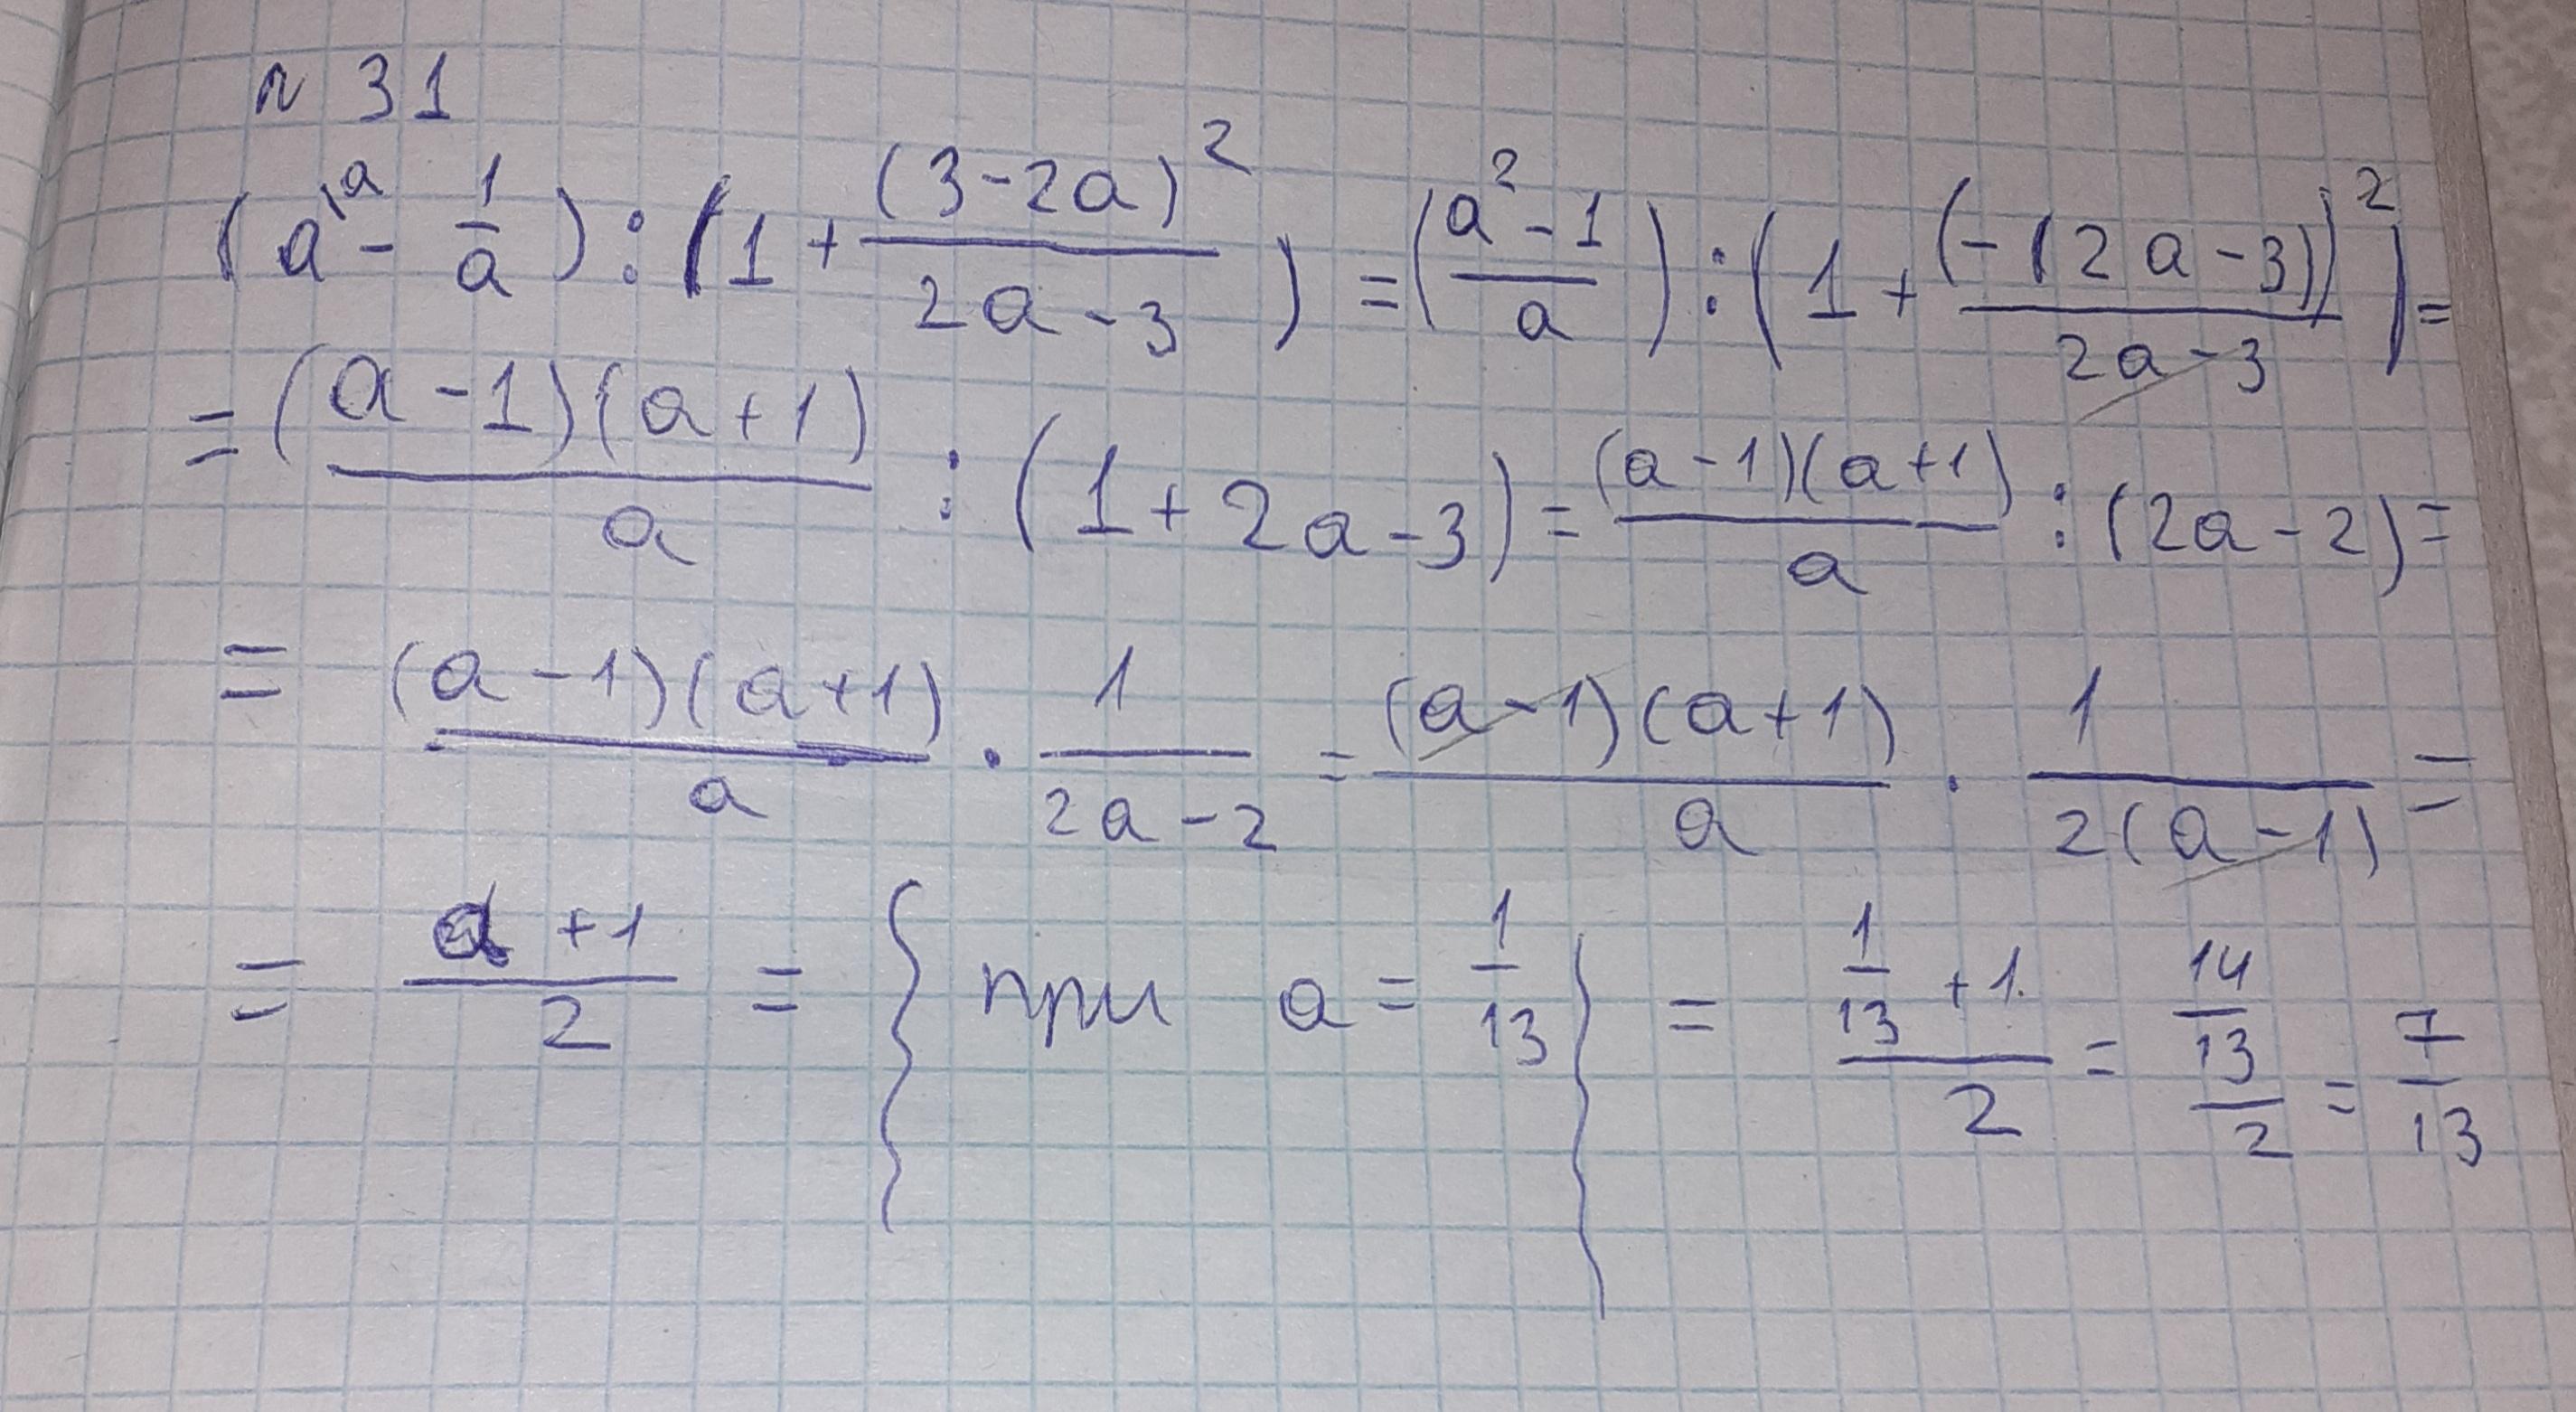 n 31
(a^{\a} - 1/a) : (1 + (3-2a)^2/(2a-3)) = ((a^2-1)/a) : (1 + (-(2a-3))^2/(2a-3)) =
= ((a-1)(a+1)/a : (1+2a-3) = (a-1)(a+1)/a : (2a-2) =
= (a-1)(a+1)/a · 1/(2a-2) = (a-1)(a+1)/a · 1/(2(a-1)) =
= (a+1)/2 = { при a = 1/13 } = (1/13 + 1)/2 = (14/13)/2 = 7/13